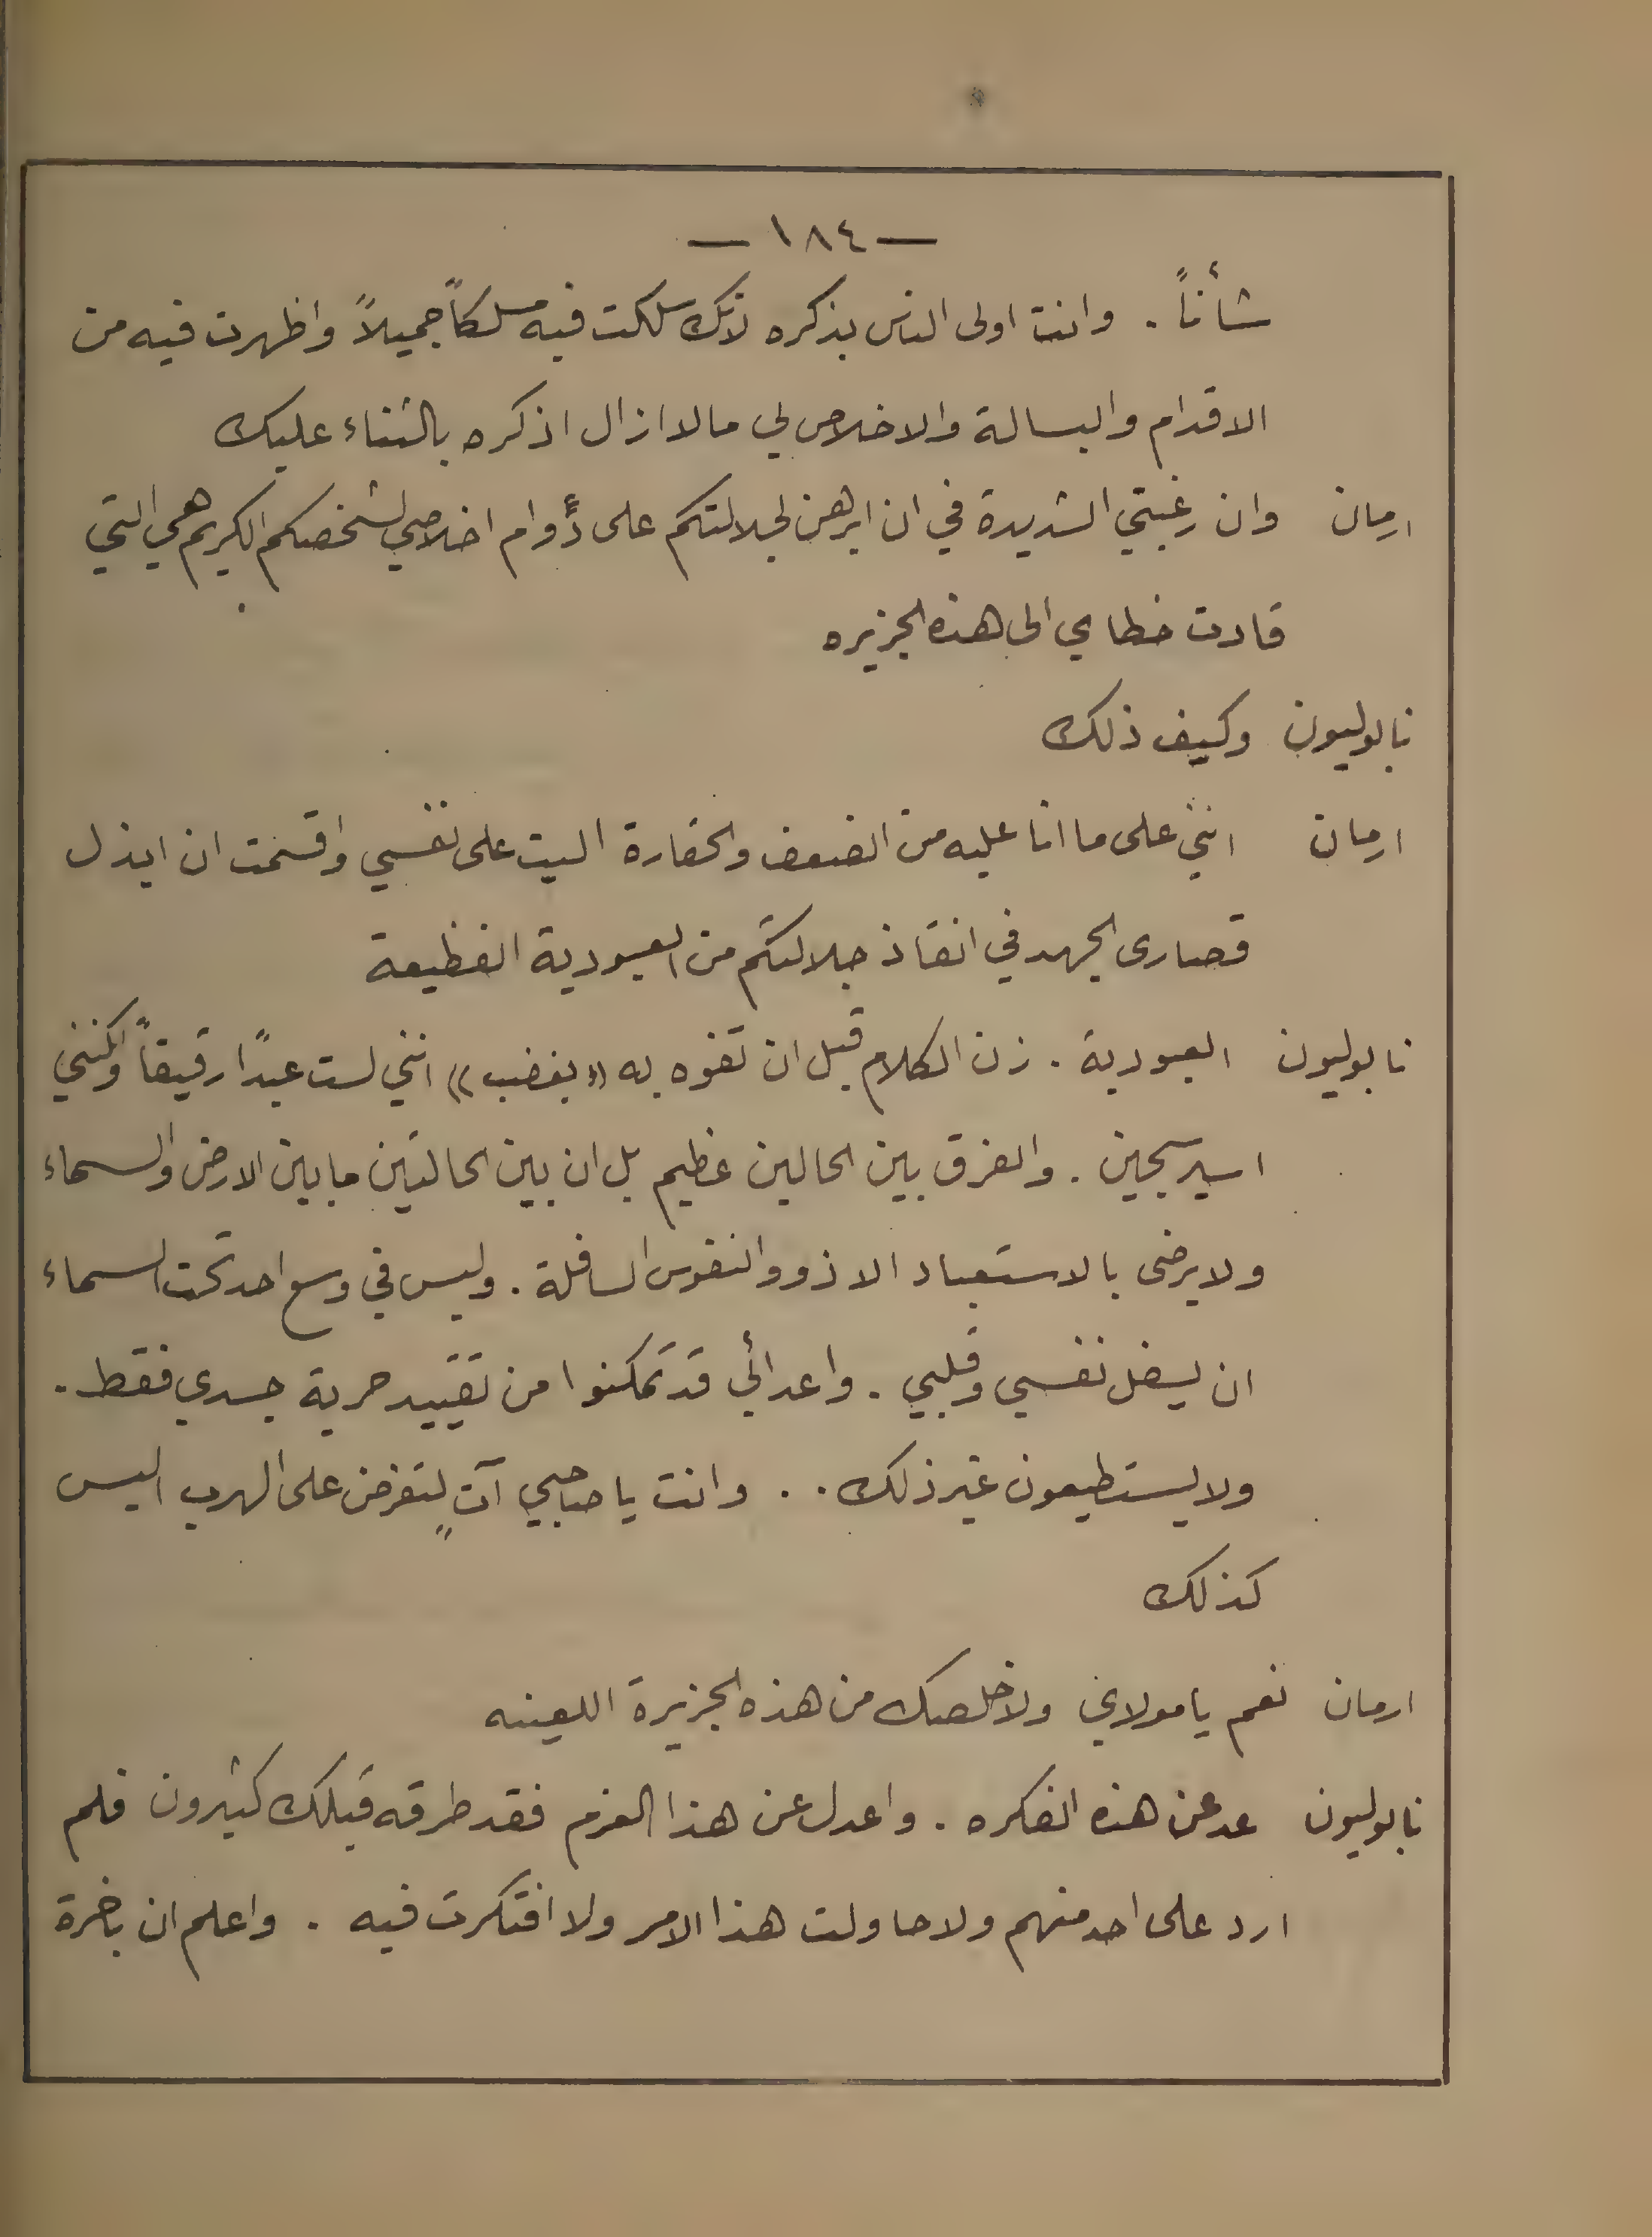 — ١٨٤ —
شأناً . وانت اولى الناس بذكره لانك سلكت فيه مسلكاً جميلاً واظهرت فيه من
الاقدام والبسالة والاخلاص لي مالا ازال اذكره بالثناء عليك
ارمان وان رغبتي الشديدة في ان ابرهن لجلالتكم على دوام اخلاصي لشخصكم الكريم هي التي
قادت خطاي الى هذه الجزيره
نابوليون وكيف ذلك
ارمان انني على ما انا عليه من الضعف والحقارة اليت على نفسي واقسمت ان ابذل
قصارى الجهد في انقاذ جلالتكم من العبودية الفظيعة
نابوليون العبودية . زن الكلام قبل ان تفوه به «بغضب» انني لست عبدًا رقيقاً ولكنني
اسير سجين . والفرق بين الحالين عظيم بل ان بين الحالتين ما بين الارض والسماء
ولا يرضى بالاستعباد الا ذوو النفوس السافلة . وليس في وسع احد تحت السماء
ان يغل نفسي وقلبي . واعدائي قد تمكنوا من تقييد حرية جسدي فقط .
ولا يستطيعون غير ذلك . . وانت يا صاحبي آتٍ لتعرض علي الهرب اليس
كذلك
ارمان نعم يا مولاي ولاخلصك من هذه الجزيرة اللعينه
نابوليون عد عن هذه الفكره . واعدل عن هذا العزم فقد طرقه قبلك كثيرون فلم
ارد على احد منهم ولا حاولت هذا الامر ولا افتكرت فيه . واعلم ان باخرة